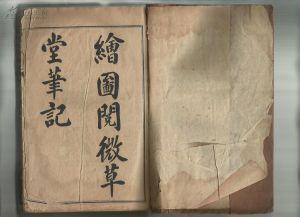 繪圖閱微草
堂筆記